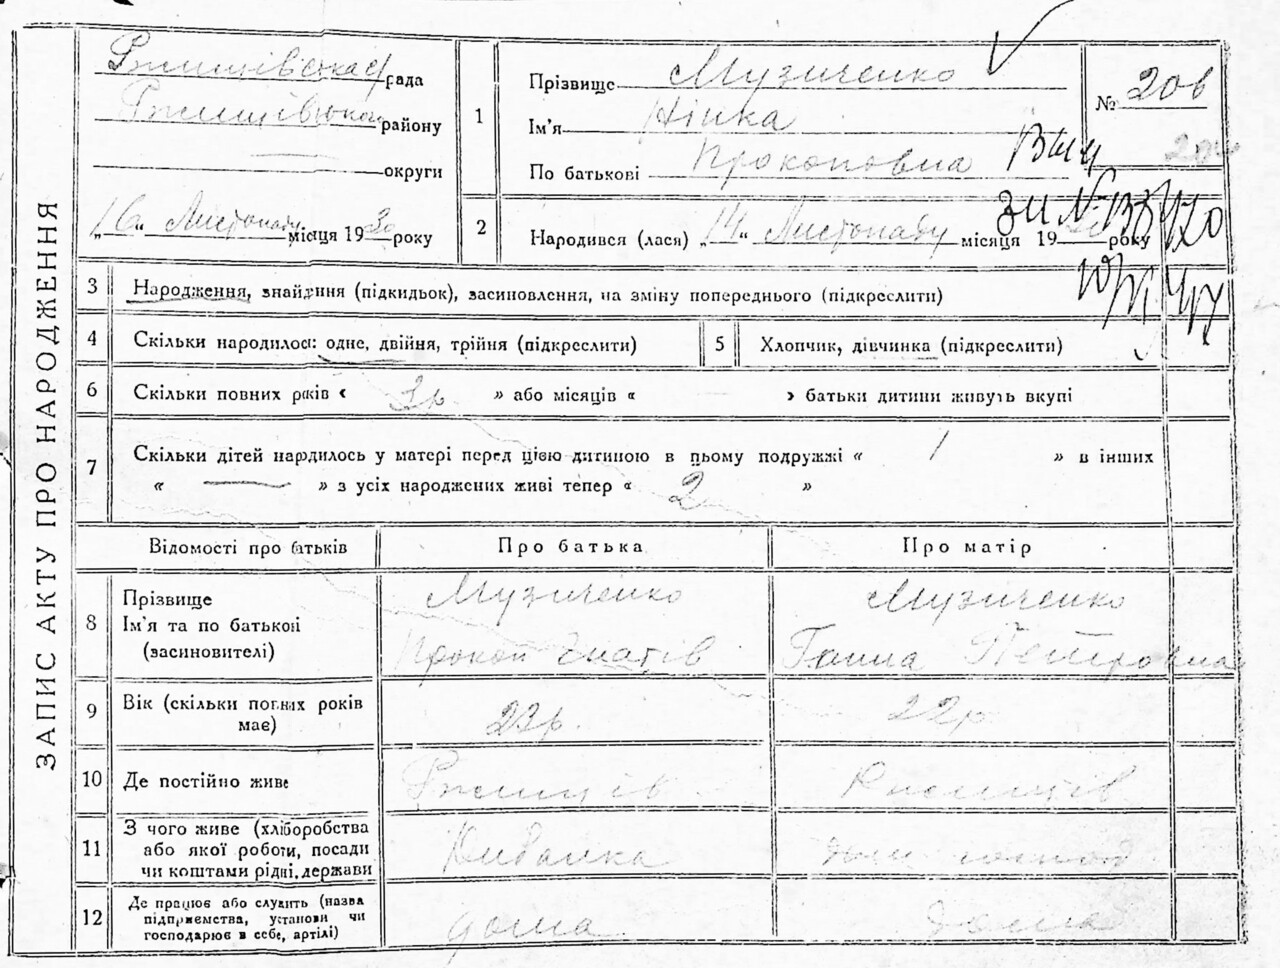 ЗАПИС АКТУ ПРО НАРОДЖЕННЯ
Ржищівська с/рада
Ржищівського району
округи
„16“ Листопаду місяця 1930 року
1
Прізвище Музиченко
Ім'я Нінка
По батькові Прокоповна
№ 206
2
Народився (лася) „14“ Листопаду місяця 19 року
3 Народження, знайдння (підкидьок), засиновлення, на зміну попереднього (підкреслити)
4 Скільки народилося: одне, двійня, трійня (підкреслити)
5 Хлопчик, дівчинка (підкреслити)
6 Скільки повних років « 3р » або місяців « › батьки дитини живуть вкупі
7 Скільки дітей народилось у матері перед цією дитиною в цьому подружжі « 1 » в інших
« — » з усіх народжених живі тепер « 2 »
Відомості про батьків Про батька Про матір
8 Прізвище Ім'я та по батькові (засиновителі)
Музиченко Прокоп Гнатів
Музиченко Ганна Петровна
9 Вік (скільки повних років має) 22р.
10 Де постійно живе Ржищів Ржищів
11 З чого живе (хліборобства або якої роботи, посади чи коштами рідні, держави
12 Де працює або служить (назва підприємства, установи чи господарює в себе, артілі) дома дома